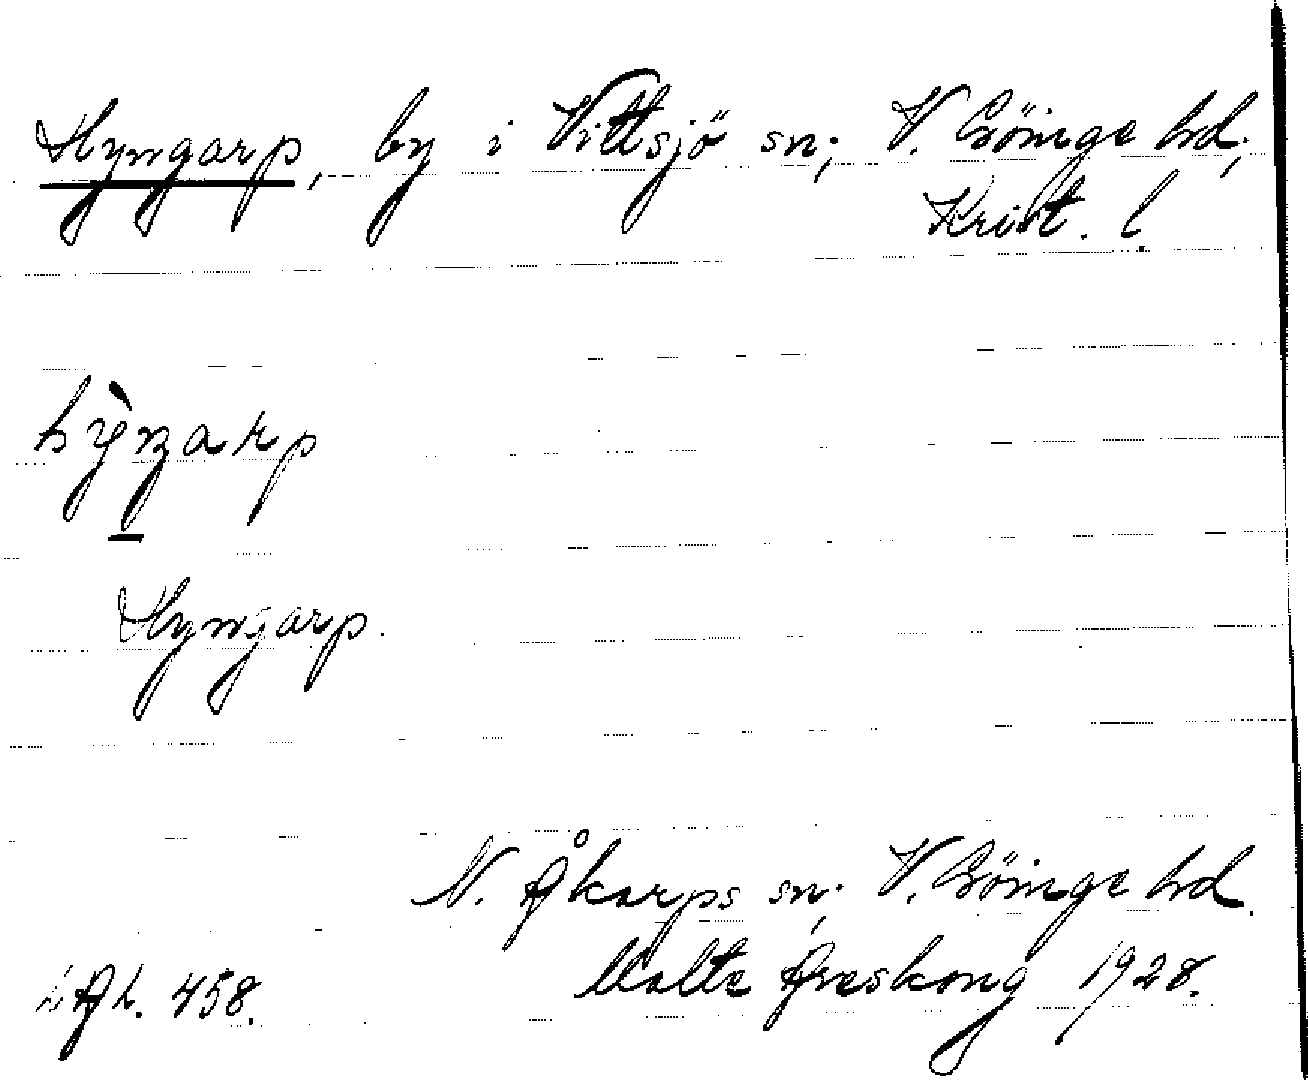 Hyngarp, by i Vittsjö sn; V. Göinge hd;
Krist. l.
hỳŋarp
Hyngarp.
N. Åkarps sn; V. Göinge hd.
Malte Areskoug 1928.
458.